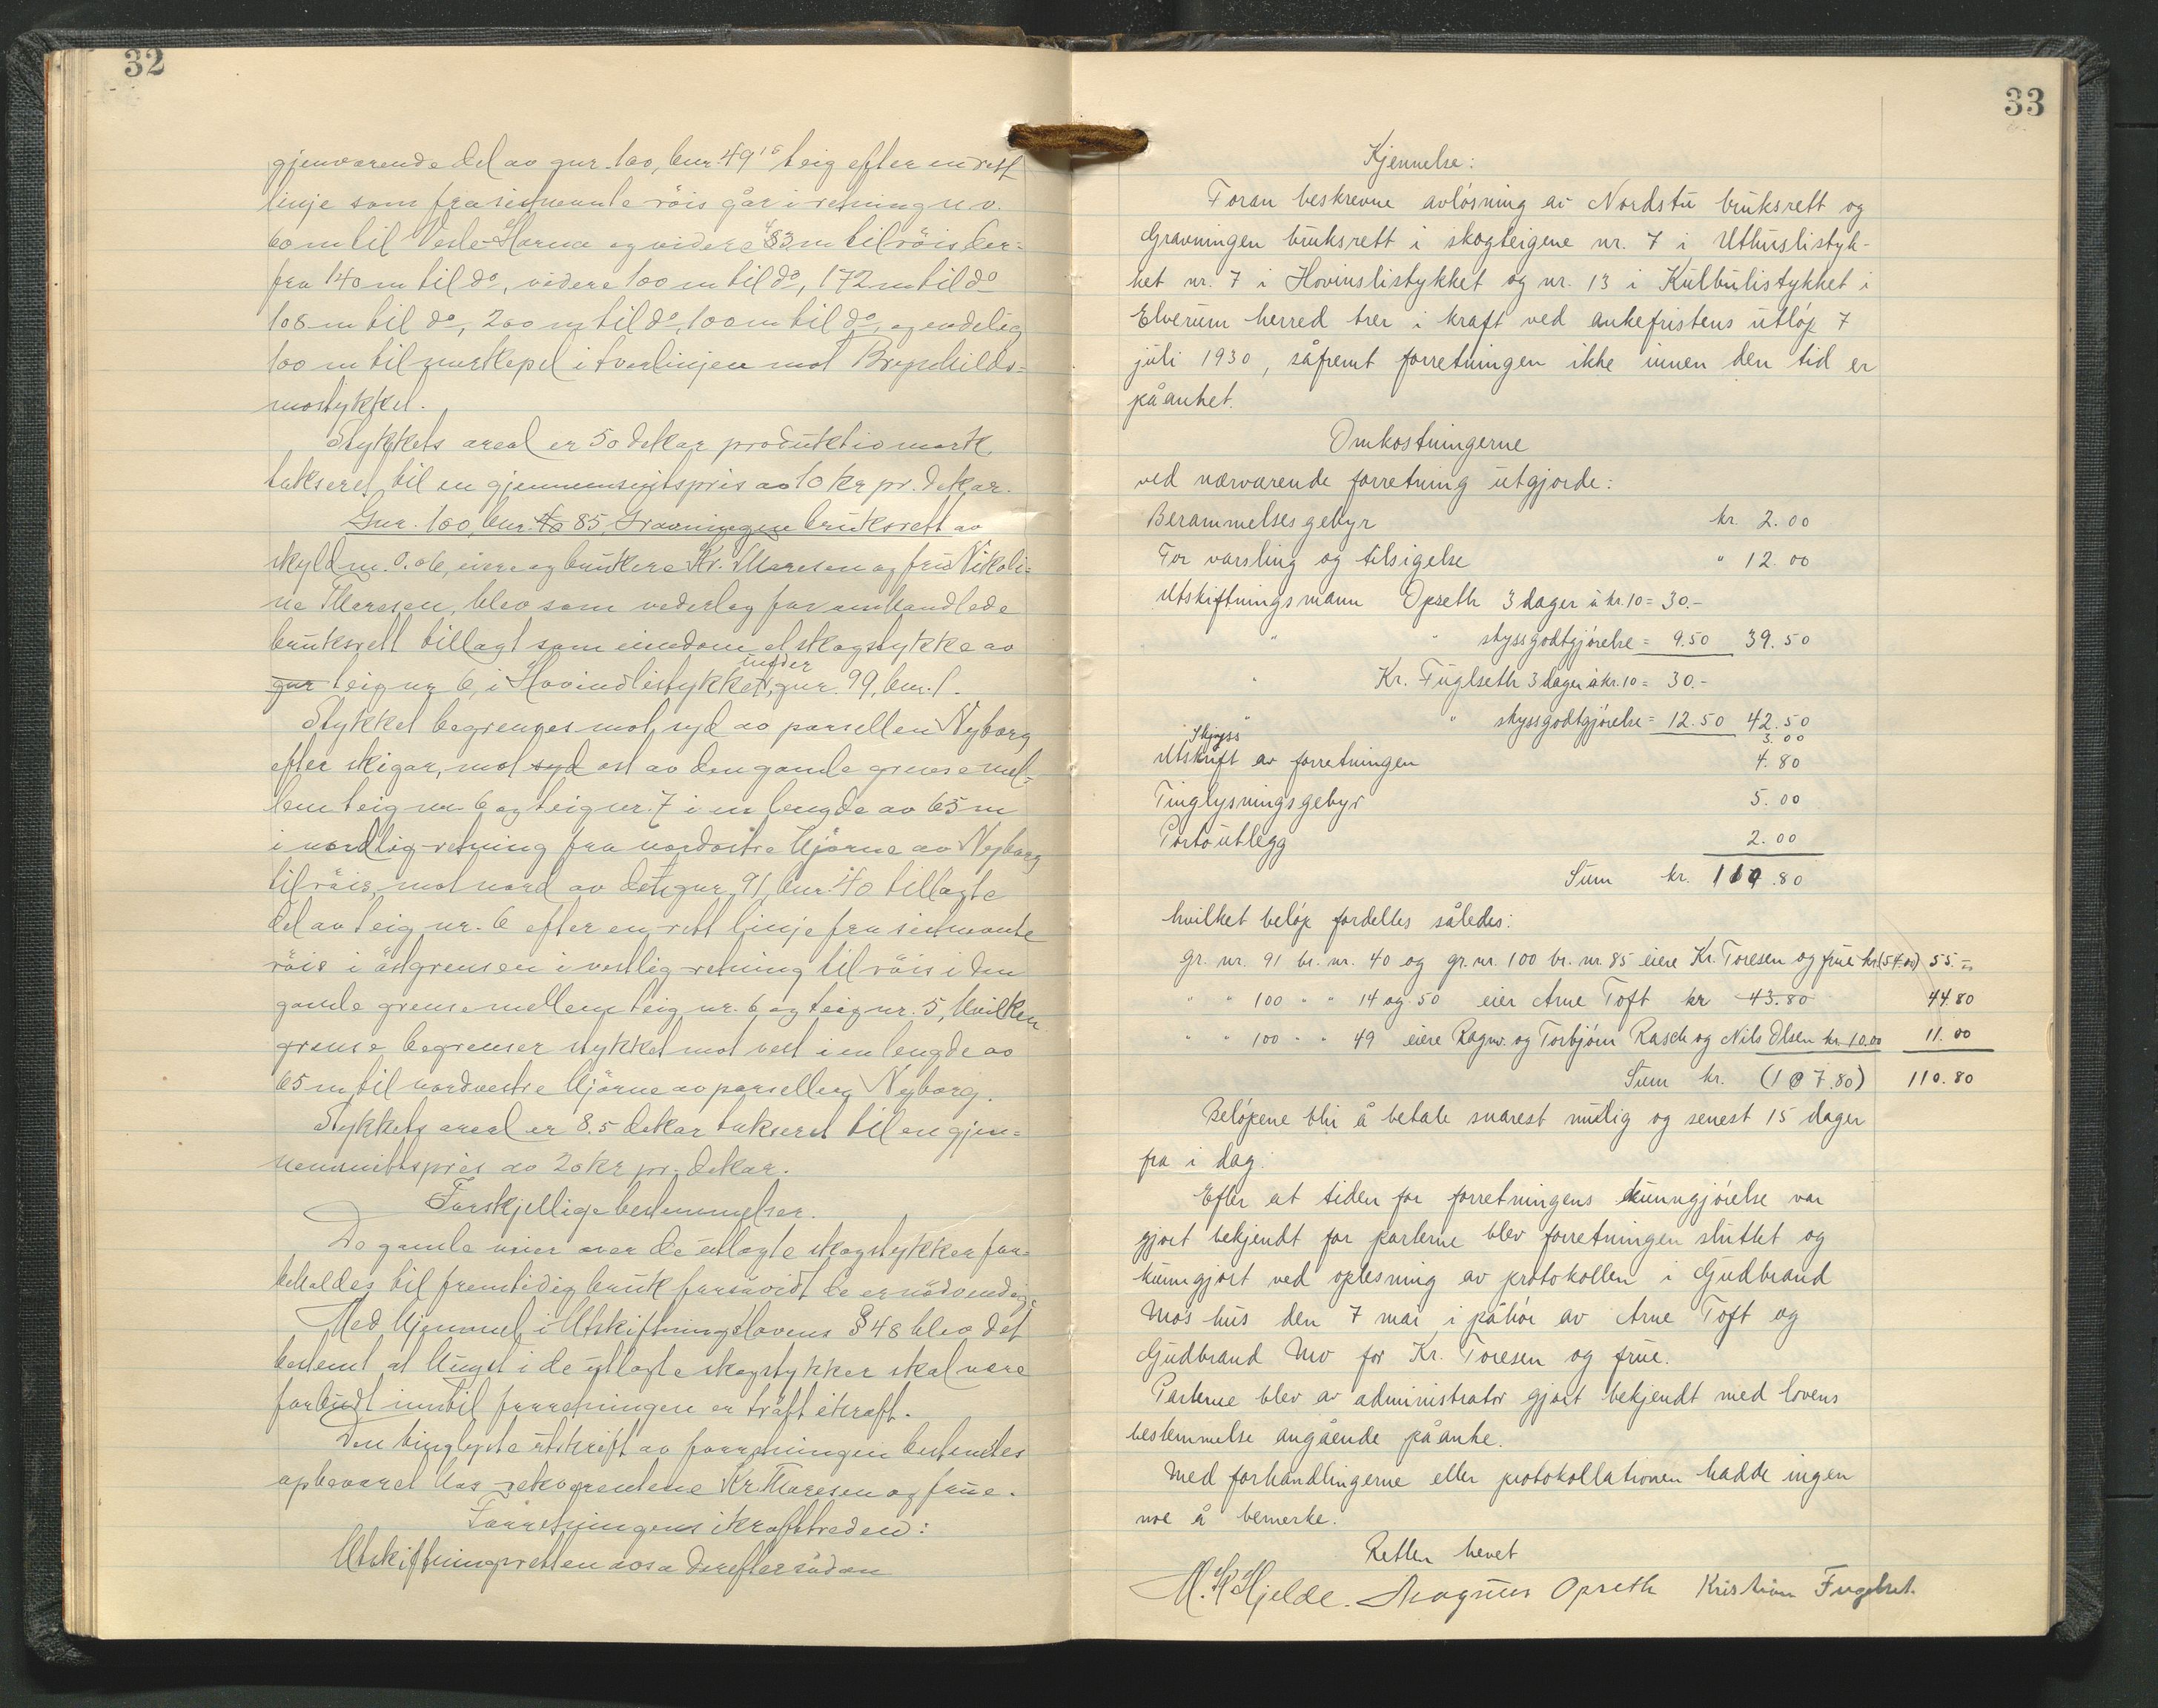 32
gjenværende del av gnr. 100, bnr. 49 's teig efter en rett
linje som fra sistnevnte röis går i retning n v.
60 m til Vesle-Horna og videre 83 m til röis der-
fra 140 m til do, videre 100 m til do, 172 m til do
108 m til do, 200 m til do, 100 m til do, og endelig
100 m til merkepel i tverlinjen mot Brynhilds-
mostykket.
Stykkets areal er 50 dekar produktiv mark,
taksert til en gjennemsnitspris av 10 kr pr. dekar.
Gnr. 100, bnr. 85 Gravningen bruksrett av
skyld m. 0.06, eiere og brukere Kr. Thoresen og frue Nikoli-
ne Thoresen, blev som vederlag for omhandlede
bruksrett tillagt som eiendom et skogstykke av
gnr teig nr 6, i Hovindlistykket, under gnr. 99, bnr. 1.
Stykket begrenses mot syd av parsellen Nyborg
efter skigar, mot syd öst av den gamle grense mel-
lem teig nr 6 og teig nr. 7 i en lengde av 65 m
i nordlig retning fra nordöstre hjörne av Nyborg
til röis, mot nord av det gnr. 91, bnr. 40 tillagte
del av teig nr. 6 efter en rett linje fra sistnevnte
röis i östgrensen i vestlig retning til röis i den
gamle grense mellem teig nr. 6 og teig nr. 5, hvilken
grense begrenser stykket mot vest i en lengde av
65 m til nordvestre hjörne av parsellen Nyborg.
Stykkets areal er 8.5 dekar taksert til en gjen-
nemsnittspris av 20 kr pr. dekar.
Forskjellige bestemmelser.
De gamle veier over de utlagte skogstykker for-
beholdes til fremtidig bruk forsåvidt de er nödvendig.
Med hjemmel i Utskiftningslovens § 48 blev det
bestemt at hugst i de utlagte skogstykker skal være
forbudt inntil forretningen er trått ikraft.
Den tinglyste utskrift av forretningen bestemtes
opbevaret hos rekvirentene Kr. Thoresen og frue.
Forretningens ikrafttreden:
Utskiftningsretten avsa derefter sådan
33
Kjennelse:
Foran beskrevne avlösning av Nordstu bruksrett og
Gravningen bruksrett i skogteigene nr. 7 i Uthuslistyk-
ket nr. 7 i Hovinslistykket og nr. 13 i Kulbulistykket i
Elverum herred trer i kraft ved ankefristens utlöp 7
juli 1930, såfremt forretningen ikke innen den tid er
påanket.
Omkostningerne
ved nærværende forretning utgjorde:
Berammelsesgebyr kr. 2.00
For varsling og tilsigelse " 12.00
Utskiftningsmann Opseth 3 dager à kr. 10 = 30.-
" " skyssgodtgjörelse = 9.50 39.50
" Kr. Fuglseth 3 dager à kr. 10 = 30.-
" " skyssgodtgjörelse = 12.50 42.50
Skyss 3.00
Utskrift av forretningen 4.80
Tinglysningsgebyr 5.00
Portoutlegg 2.00
Sum kr. 110.80
hvilket belöp fordelles således:
Gr. nr. 91 br. nr. 40 og gr. nr. 100 br. nr. 85 eiere Kr. Toresen og frue kr. (54.00) 55.-
" " 100 " " 14 og 50 eier Arne Toft kr 43.80 44.80
" " 100 " " 49 eiere Ragnv. og Torbjörn Rasch og Nils Olsen kr. 10.00 11.00
Sum kr. (107.80) 110.80
Belöpene blir å betale snarest mulig og senest 15 dager
fra i dag.
Efter at tiden for forretningens kunngjörelse var
gjort bekjendt for parterne blev forretningen sluttet og
kunngjort ved oplesning av protokollen i Gudbrand
Mo's hus den 7 mai i påhör av Arne Toft og
Gudbrand Mo for Kr. Toresen og frue.
Parterne blev av administrator gjort bekjendt med lovens
bestemmelse angående påanke.
Med forhandlingerne eller protokollationen hadde ingen
noe å bemerke.
Retten hevet
M. K. Hjelde. Magnus Opseth Kristian Fuglset.